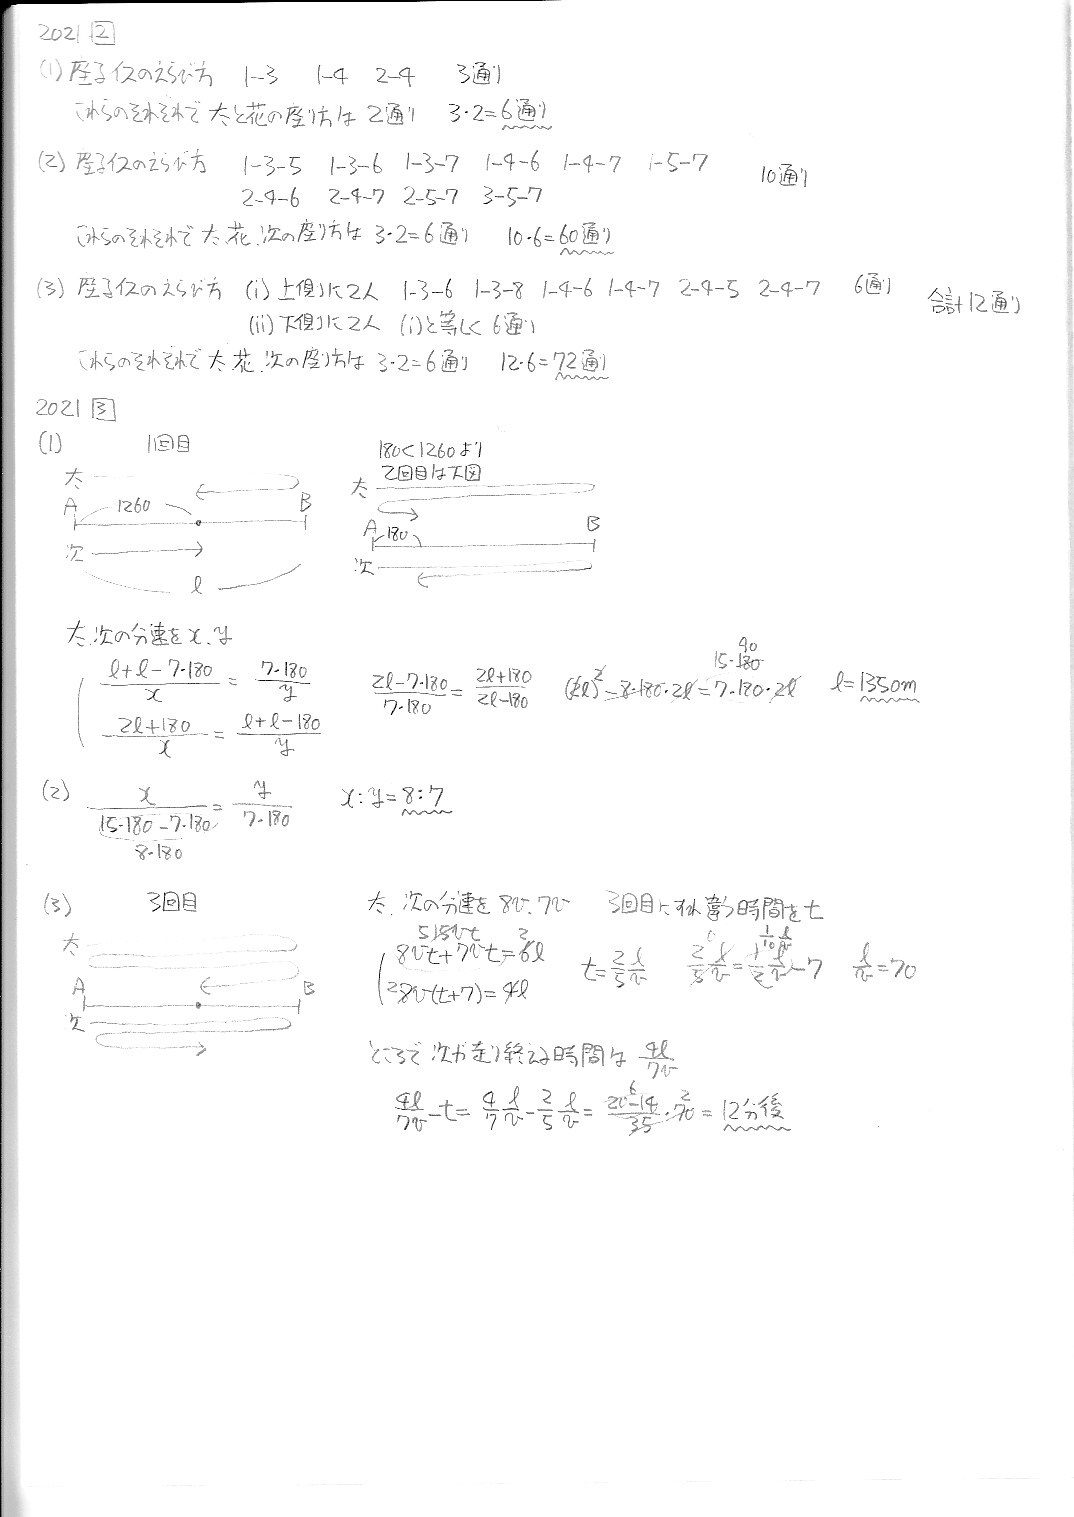 2021 2
(1) 座るイスのえらび方 1-3 1-4 2-4 3通り
これらのそれぞれで 太と花の座り方は 2通り 3・2=6通り
(2) 座るイスのえらび方 1-3-5 1-3-6 1-3-7 1-4-6 1-4-7 1-5-7 10通り
2-4-6 2-4-7 2-5-7 3-5-7
これらのそれぞれで 太、花、次の座り方は 3・2=6通り 10・6=60通り
(3) 座るイスのえらび方 (i) 上側に2人 1-3-6 1-3-8 1-4-6 1-4-7 2-4-5 2-4-7 6通り 合計12通り
(ii) 下側に2人 (i)と等しく 6通り
これらのそれぞれで 太、花、次の座り方は 3・2=6通り 12・6=72通り
2021 3
(1) 1回目
太
A 1260 B
次
l
180<1260より
2回目は下図
太
A 180 B
次
太、次の分速をx、y
(l+l-7・180)/x = 7・180/y
(2l+180)/x = (l+l-180)/y
(2l-7・180)/(7・180) = (2l+180)/(2l-180) (2l)²-8・180・2l=7・180・2l 15・180 90 l=1350m
(2) x/(15・180-7・180) = y/(7・180) x:y=8:7
8・180
(3) 3回目
太
A B
次
太、次の分速を 8v、7v 3回目にすれ違う時間をt
5 15vt 2
8vt+7vt=6l t=2/5 l/v 2/5 l/v = 1/2 l/v - 7 1/10 l/v l/v=70
2 8v(t+7)=4l
ところで 次が走り終える時間は 4l/7v
4l/7v - t = 4/7 l/v - 2/5 l/v = (20-14)/35・70 6 2 = 12分後